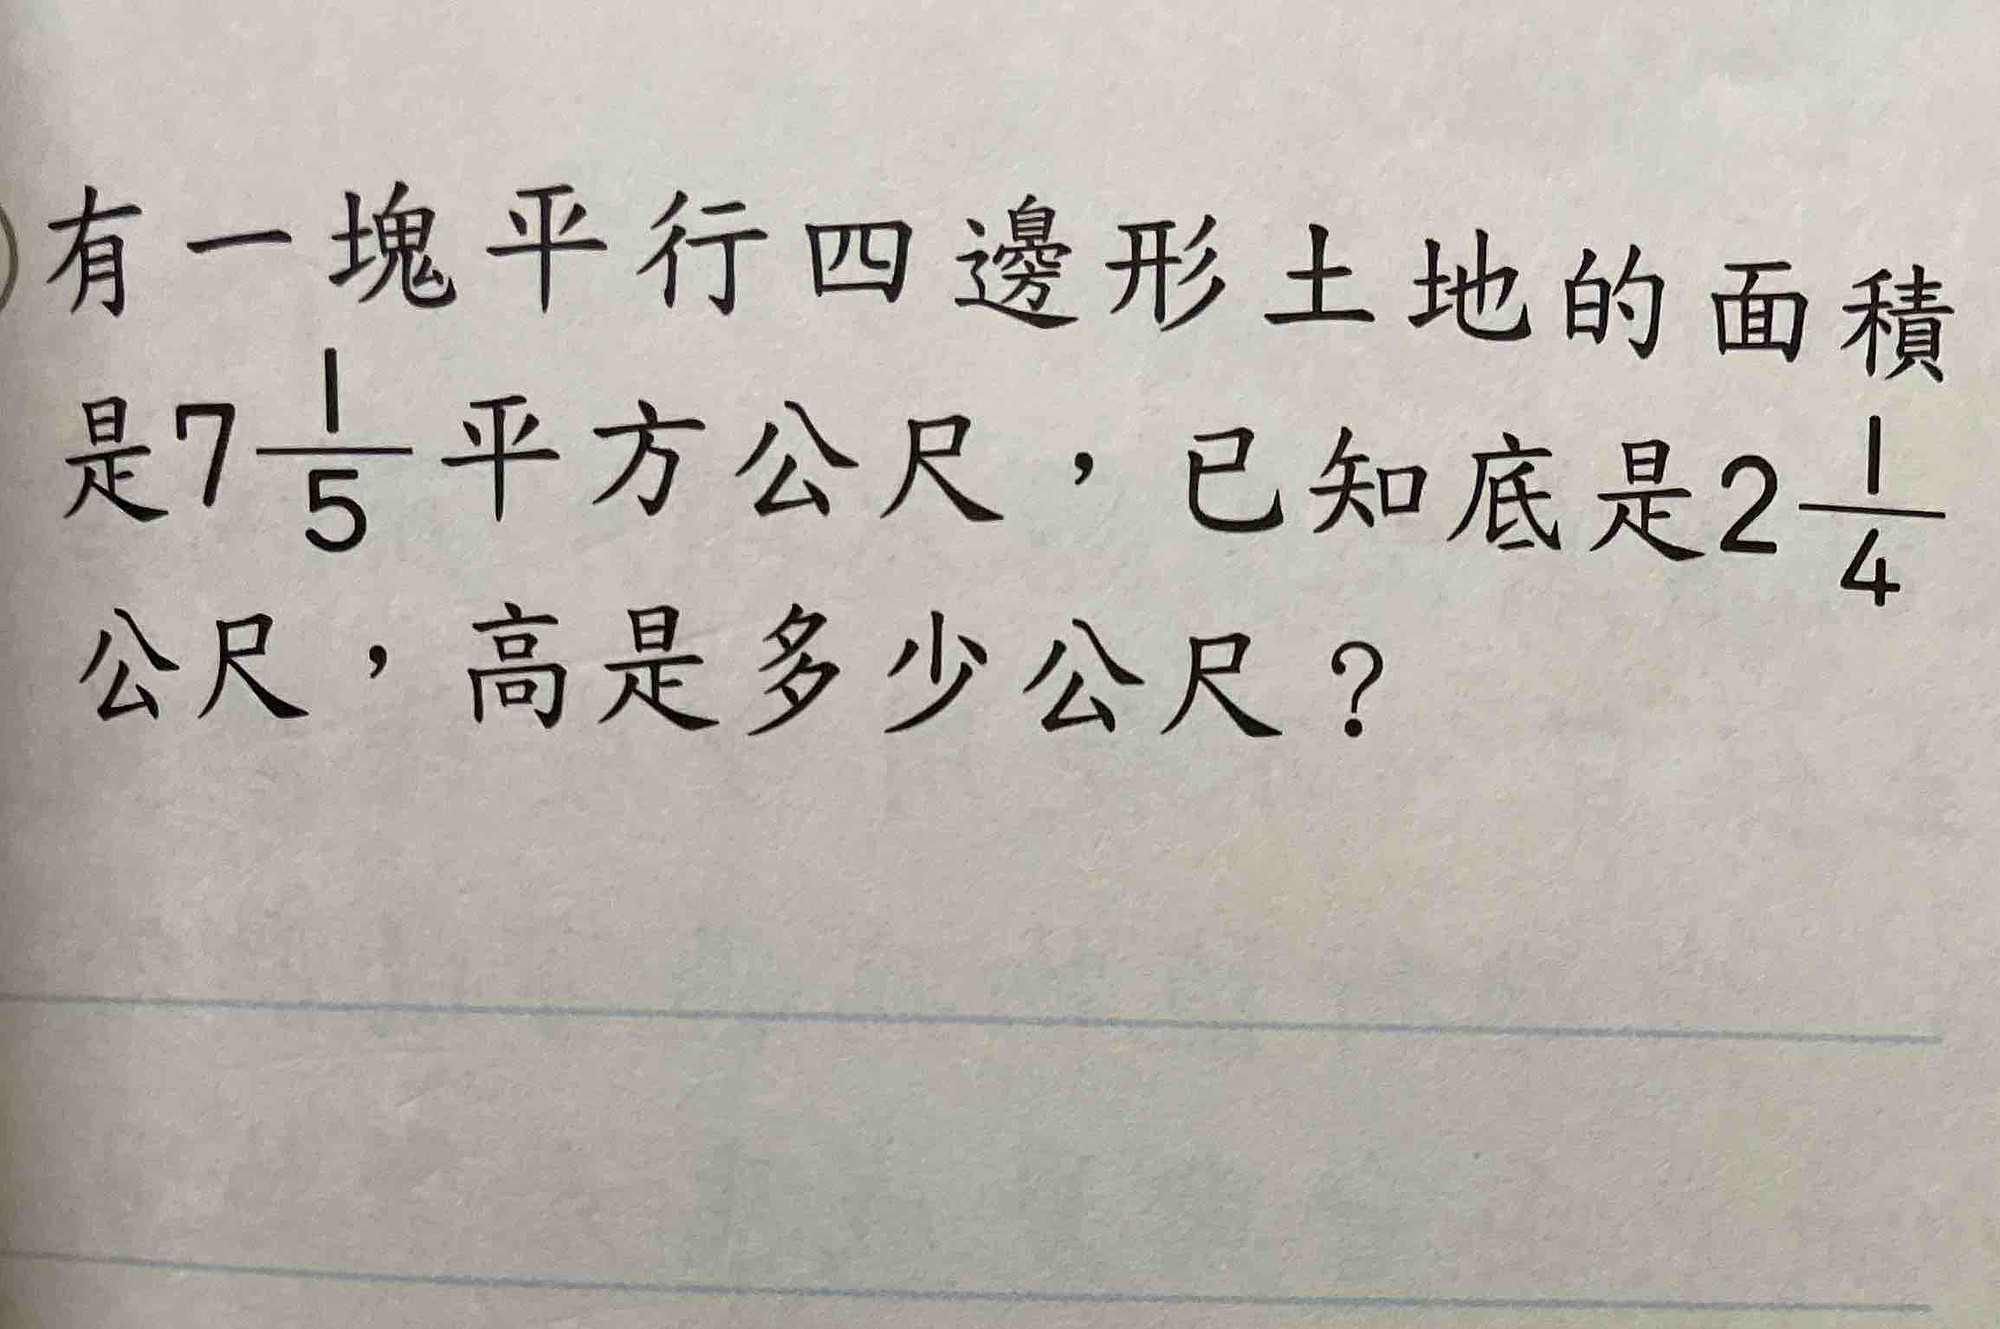 有一塊平行四邊形土地的面積
是7 1/5 平方公尺，已知底是2 1/4
公尺，高是多少公尺？